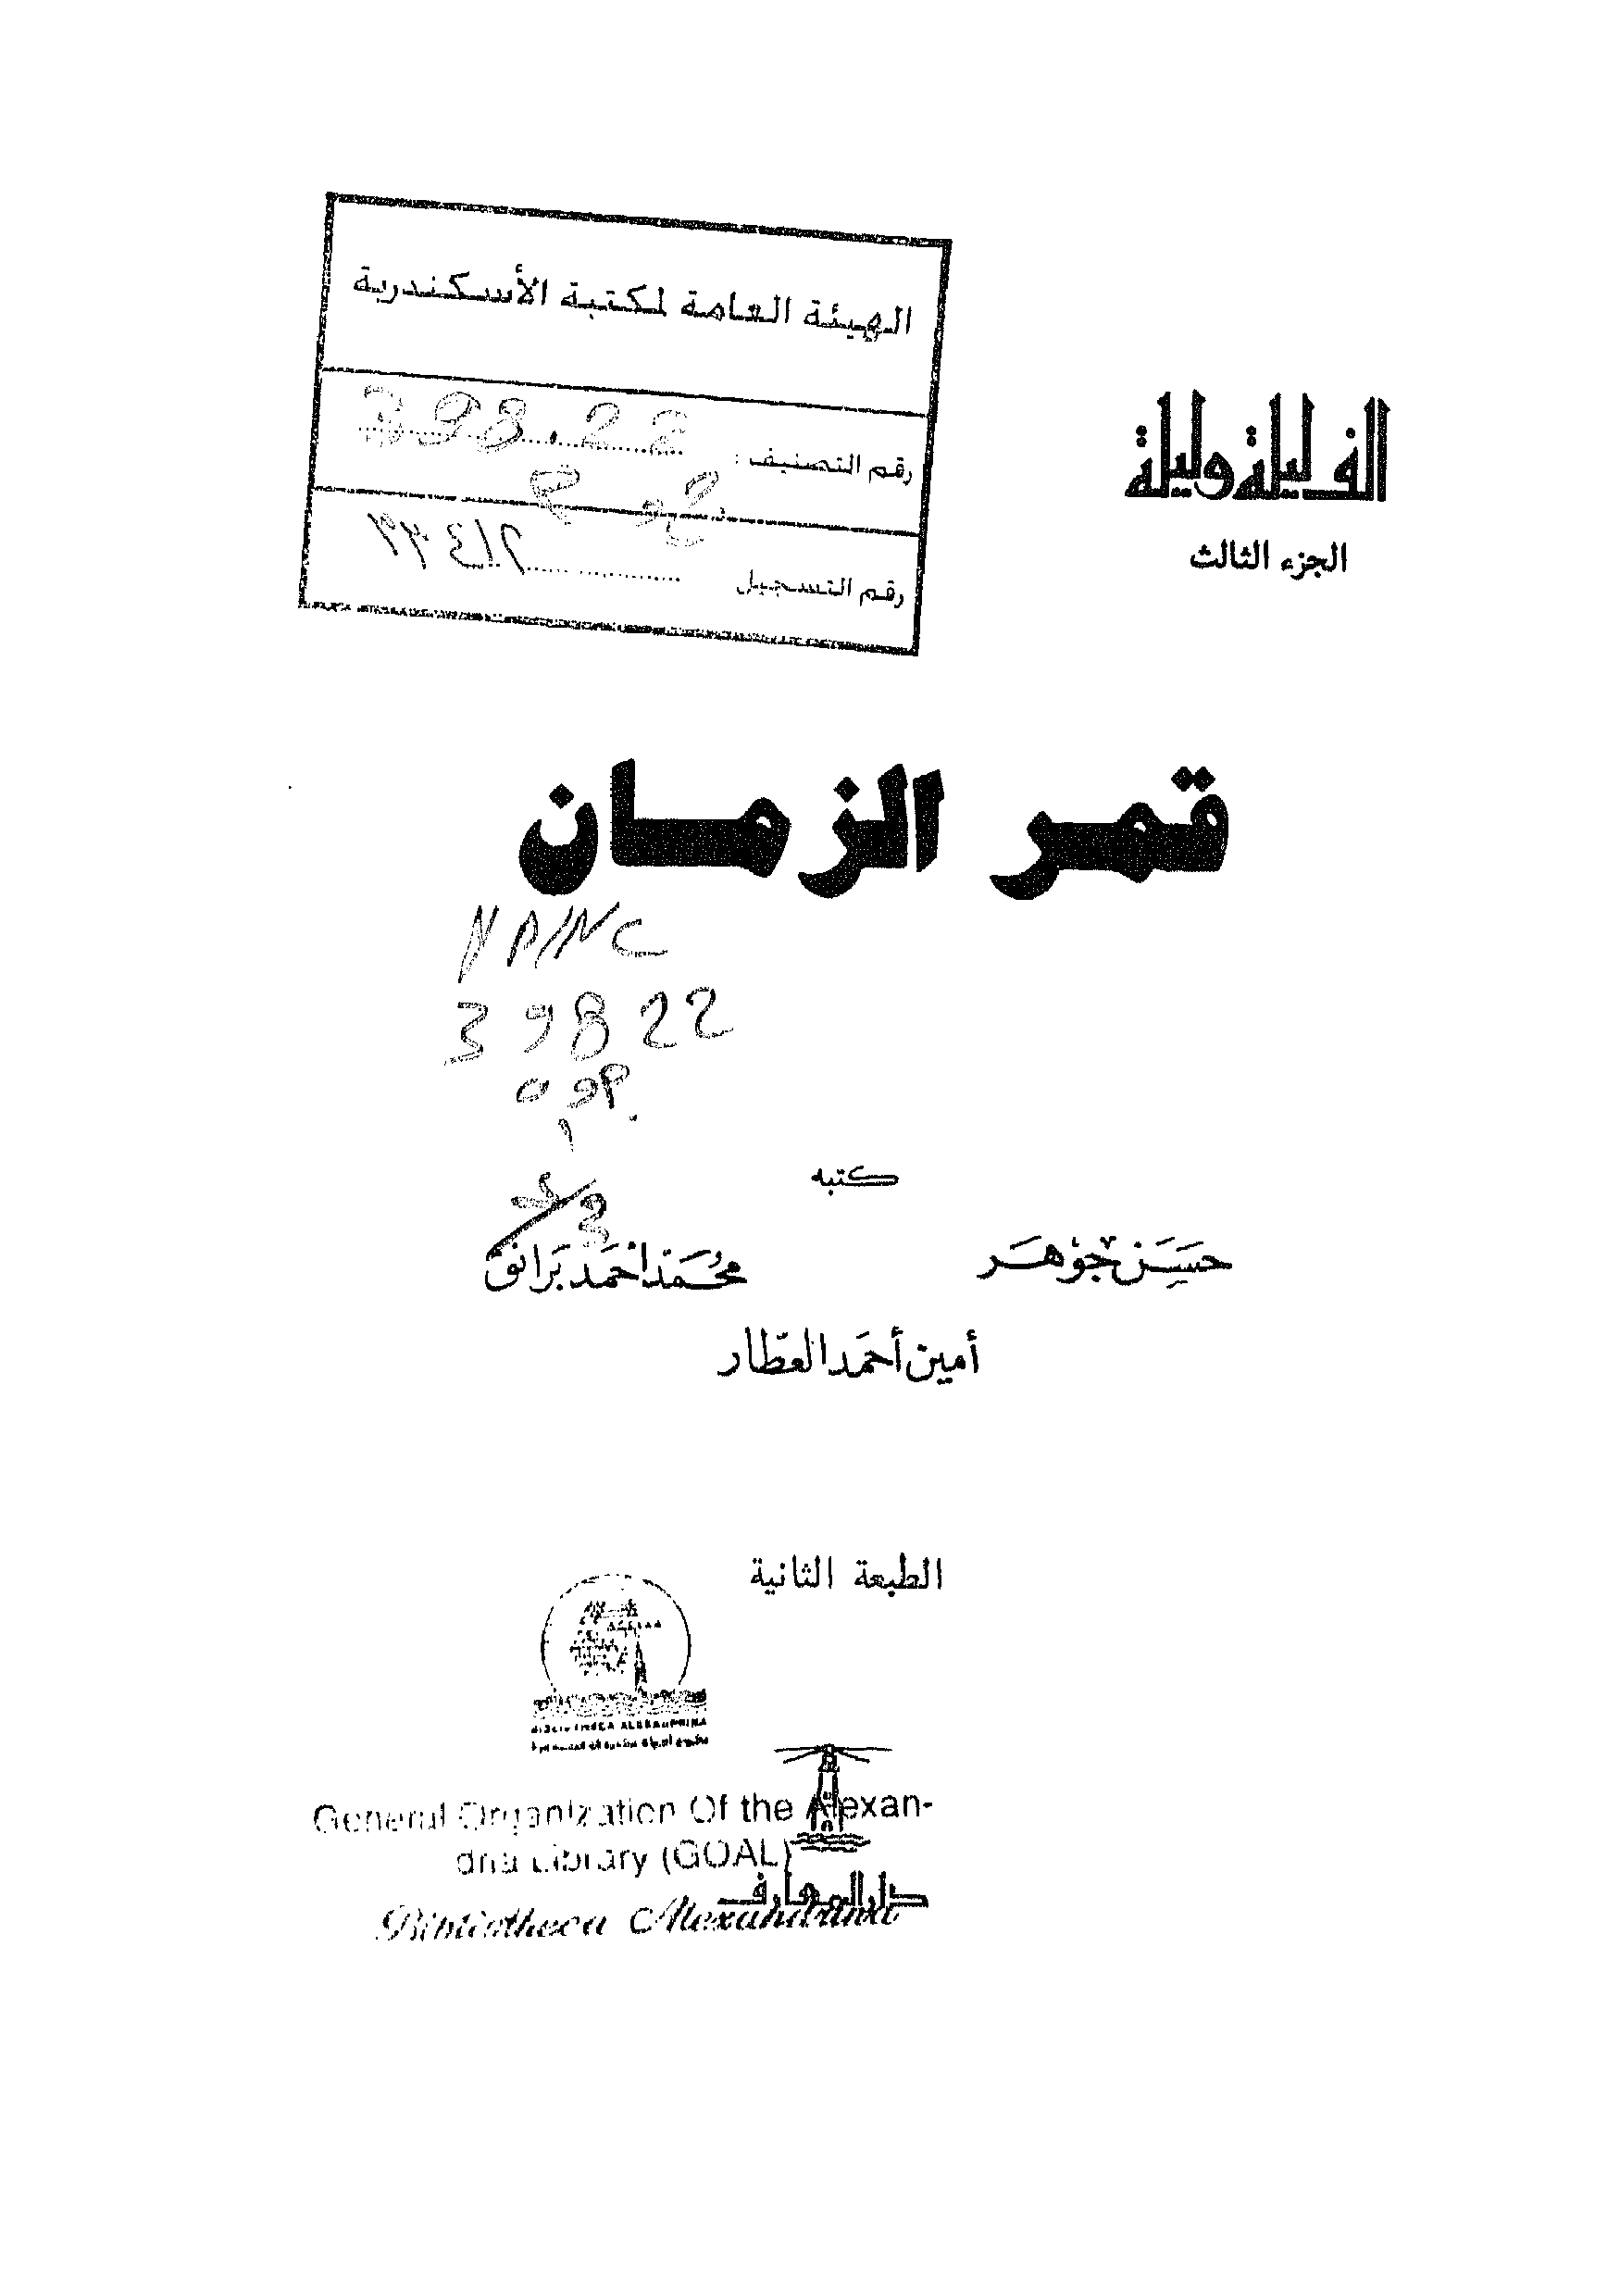 الهيئة العامة لمكتبة الأسكندرية
رقم التصنيف : 398.22
رقم التسجيل
ألف ليلة وليلة
الجزء الثالث
قمر الزمان
39822
كتبه
حسن جوهر
محمد أحمد برانق
أمين أحمد العطار
الطبعة الثانية
BIBLIOTHECA ALEXANDRINA
General Organization Of the Alexan-
dria Library (GOAL)
دار المعارف
Bibliotheca Alexandrina